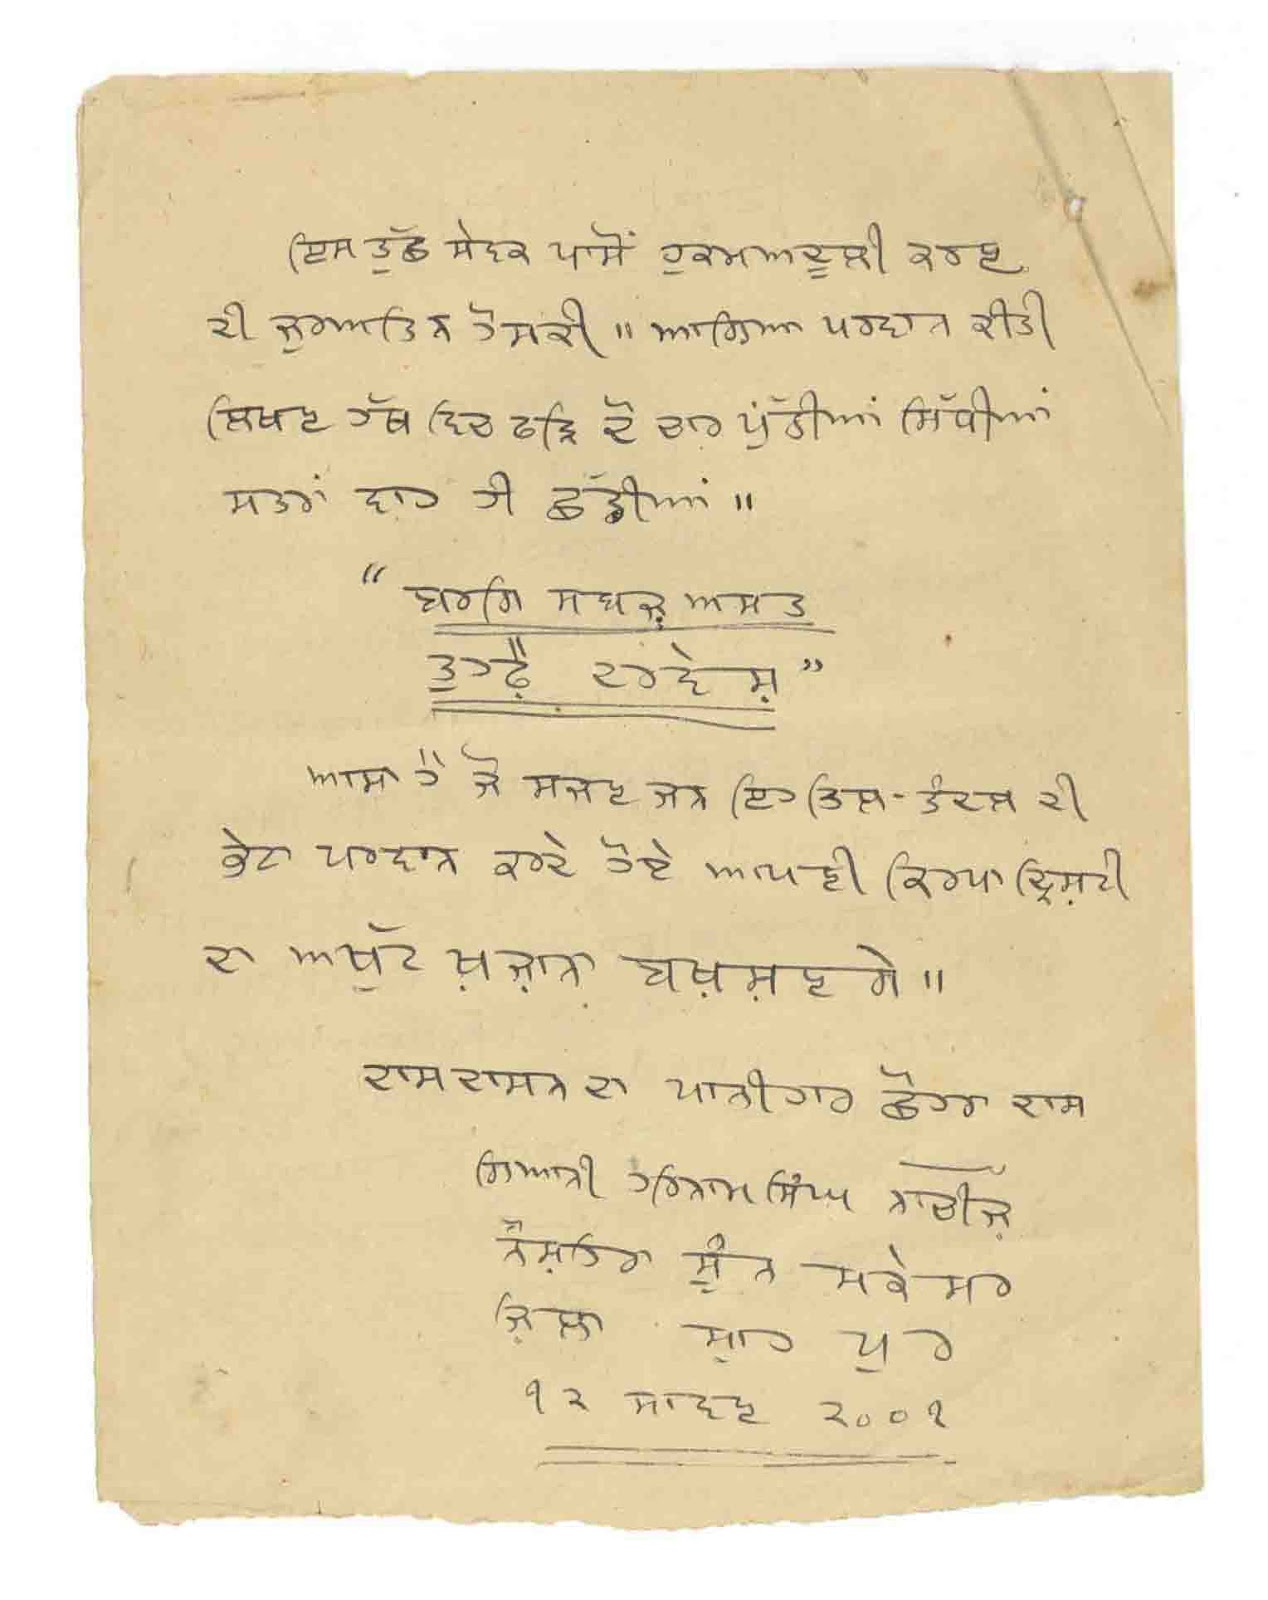 ਇਸ ਤੁੱਛ ਸੇਵਕ ਪਾਸੋਂ ਹੁਕਮਅਦੂਲੀ ਕਰਣ
ਦੀ ਜੁਰਅਤਿ ਨ ਹੋ ਸਕੀ ॥ ਆਗਿਆ ਪਰਵਾਨ ਕੀਤੀ
ਲਿਖਣ ਹੱਥ ਵਿਚ ਫੜਿ ਦੋ ਚਾਰ ਪੁੱਠੀਆਂ ਸਿੱਧੀਆਂ
ਸਤਰਾਂ ਵਾਹ ਹੀ ਛੱਡੀਆਂ ॥
“ ਬਰਗਿ ਸਬਜ਼ ਅਸਤ
ਤੁਹਫ਼ੈ ਦਰਵੇਸ਼ ”
ਆਸਾ ਹੈ ਜੋ ਸਜਣ ਜਨ ਇਹ ਤਿਲ - ਤੰਦਲ ਦੀ
ਭੇਟਾ ਪਰਵਾਨ ਕਰਦੇ ਹੋਏ ਆਪਣੀ ਕਿਰਪਾ ਦ੍ਰਿਸ਼ਟੀ
ਦਾ ਅਖੁੱਟ ਖ਼ਜ਼ਾਨਾ ਬਖ਼ਸ਼ਣ ਗੇ ॥
ਦਾਸ ਦਾਸਨ ਦਾ ਪਾਨੀਹਾਰ ਛੋਹਰਾ ਦਾਸ
ਗਿਆਨੀ ਹਰਿਨਾਮ ਸਿੰਘ ਨਾਚੀਜ਼
ਨੌਸ਼ਹਿਰਾ ਸੂੰਨ ਸਕੇਸਰ
ਜ਼ਿਲਾ ਸ਼ਾਹ ਪੁਰ
੧੨ ਸਾਵਣ ੨੦੦੧